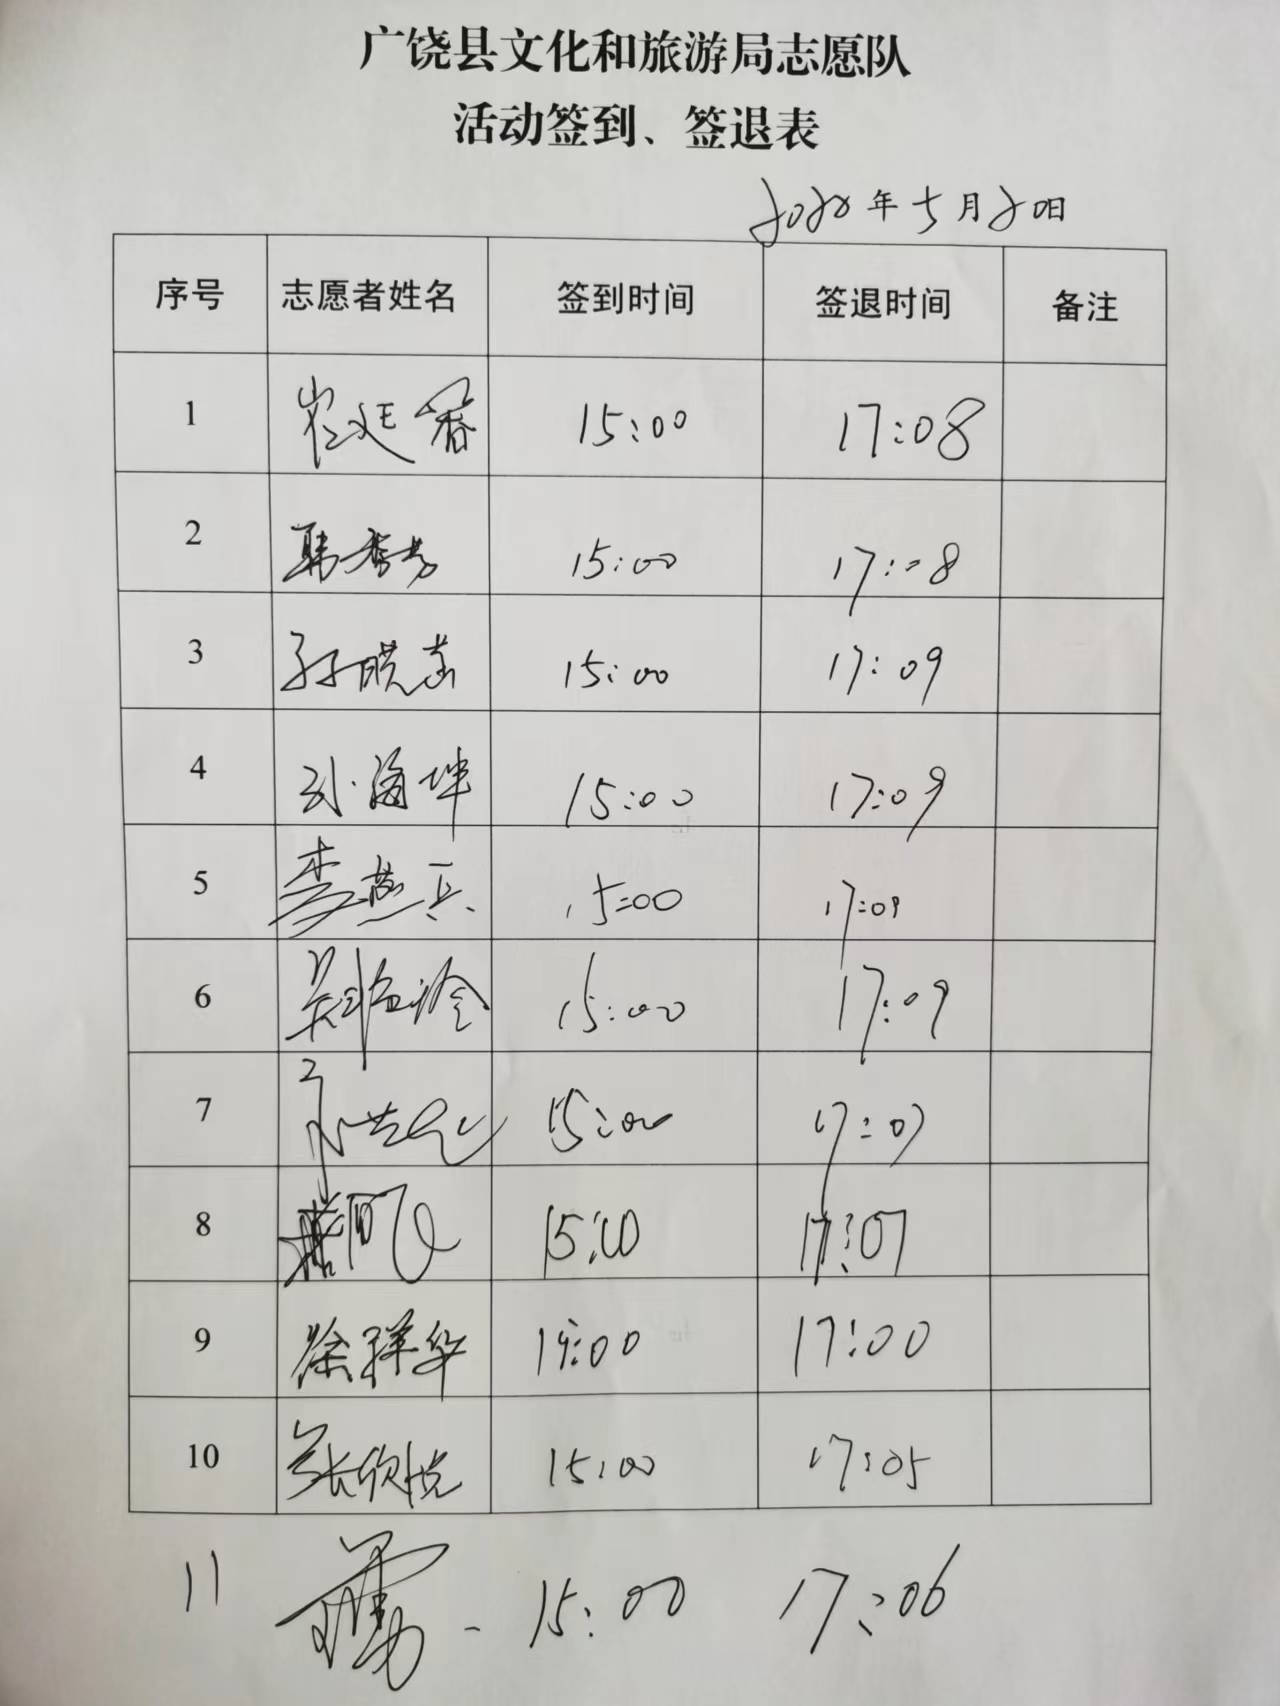 广饶县文化和旅游局志愿队
活动签到、签退表
年5月20日
序号 志愿者姓名 签到时间 签退时间 备注
1 崔廷 15:00 17:08
2 韩秀芳 15:00 17:08
3 孙晓 15:00 17:09
4 刘海坤 15:00 17:09
5 李燕兵 15:00 17:09
6 15:00 17:09
7 15:00 17:07
8 15:00 17:07
9 徐祥华 15:00 17:00
10 张欣悦 15:00 17:05
11 15:00 17:06